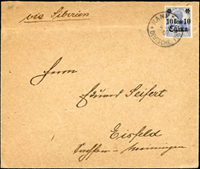 via Sibirien
10 Cen 10
China
Herrn
Eduard Seifert
Eisfeld
Sachsen-Meiningen